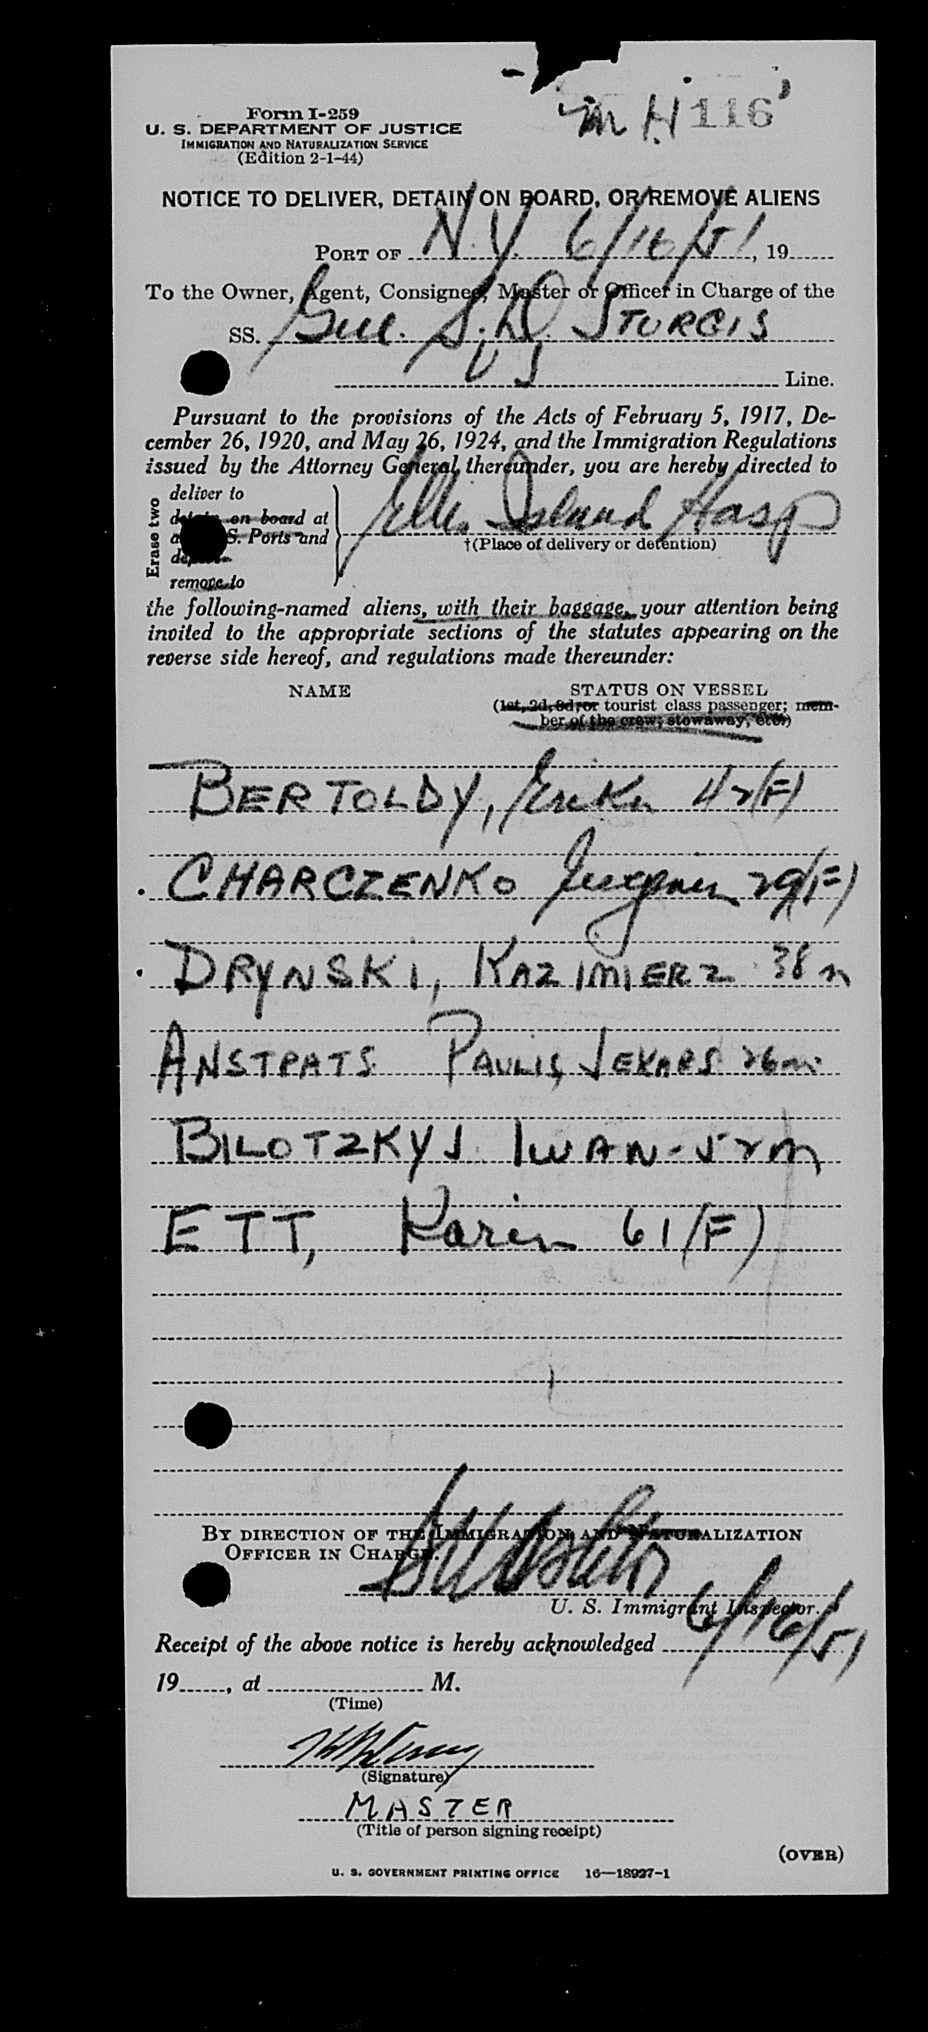 m H 116
Form I-259
U. S. DEPARTMENT OF JUSTICE
IMMIGRATION AND NATURALIZATION SERVICE
(Edition 2-1-44)
NOTICE TO DELIVER, DETAIN ON BOARD, OR REMOVE ALIENS
PORT OF N.Y. 6/16/51, 19
To the Owner, Agent, Consignee, Master or Officer in Charge of the
SS. Gen. S.D. STURGIS
US Line.
Pursuant to the provisions of the Acts of February 5, 1917, De-
cember 26, 1920, and May 26, 1924, and the Immigration Regulations
issued by the Attorney General thereunder, you are hereby directed to
Erase two
deliver to
detain on board at
S. Ports and
remove to
Ellis Island Hosp
†(Place of delivery or detention)
the following-named aliens, with their baggage, your attention being
invited to the appropriate sections of the statutes appearing on the
reverse side hereof, and regulations made thereunder:
NAME STATUS ON VESSEL
(1st, 2d, 3d, or tourist class passenger; mem-
ber of the crew; stowaway, etc.)
BERTOLDY, Erika 42(F)
CHARCZENKO 29(F)
DRYNSKI, KAZIMIERZ 38 m
ANSTRATS PAULIS, JEKABS 26m
BILOTZKYJ IWAN - 52m
ETT, Karin 61(F)
BY DIRECTION OF THE IMMIGRATION AND NATURALIZATION
OFFICER IN CHARGE.
U. S. Immigrant Inspector.
Receipt of the above notice is hereby acknowledged 6/16/51
19, at M.
(Time)
(Signature)
MASTER
(Title of person signing receipt)
(OVER)
U. S. GOVERNMENT PRINTING OFFICE 16—18927-1